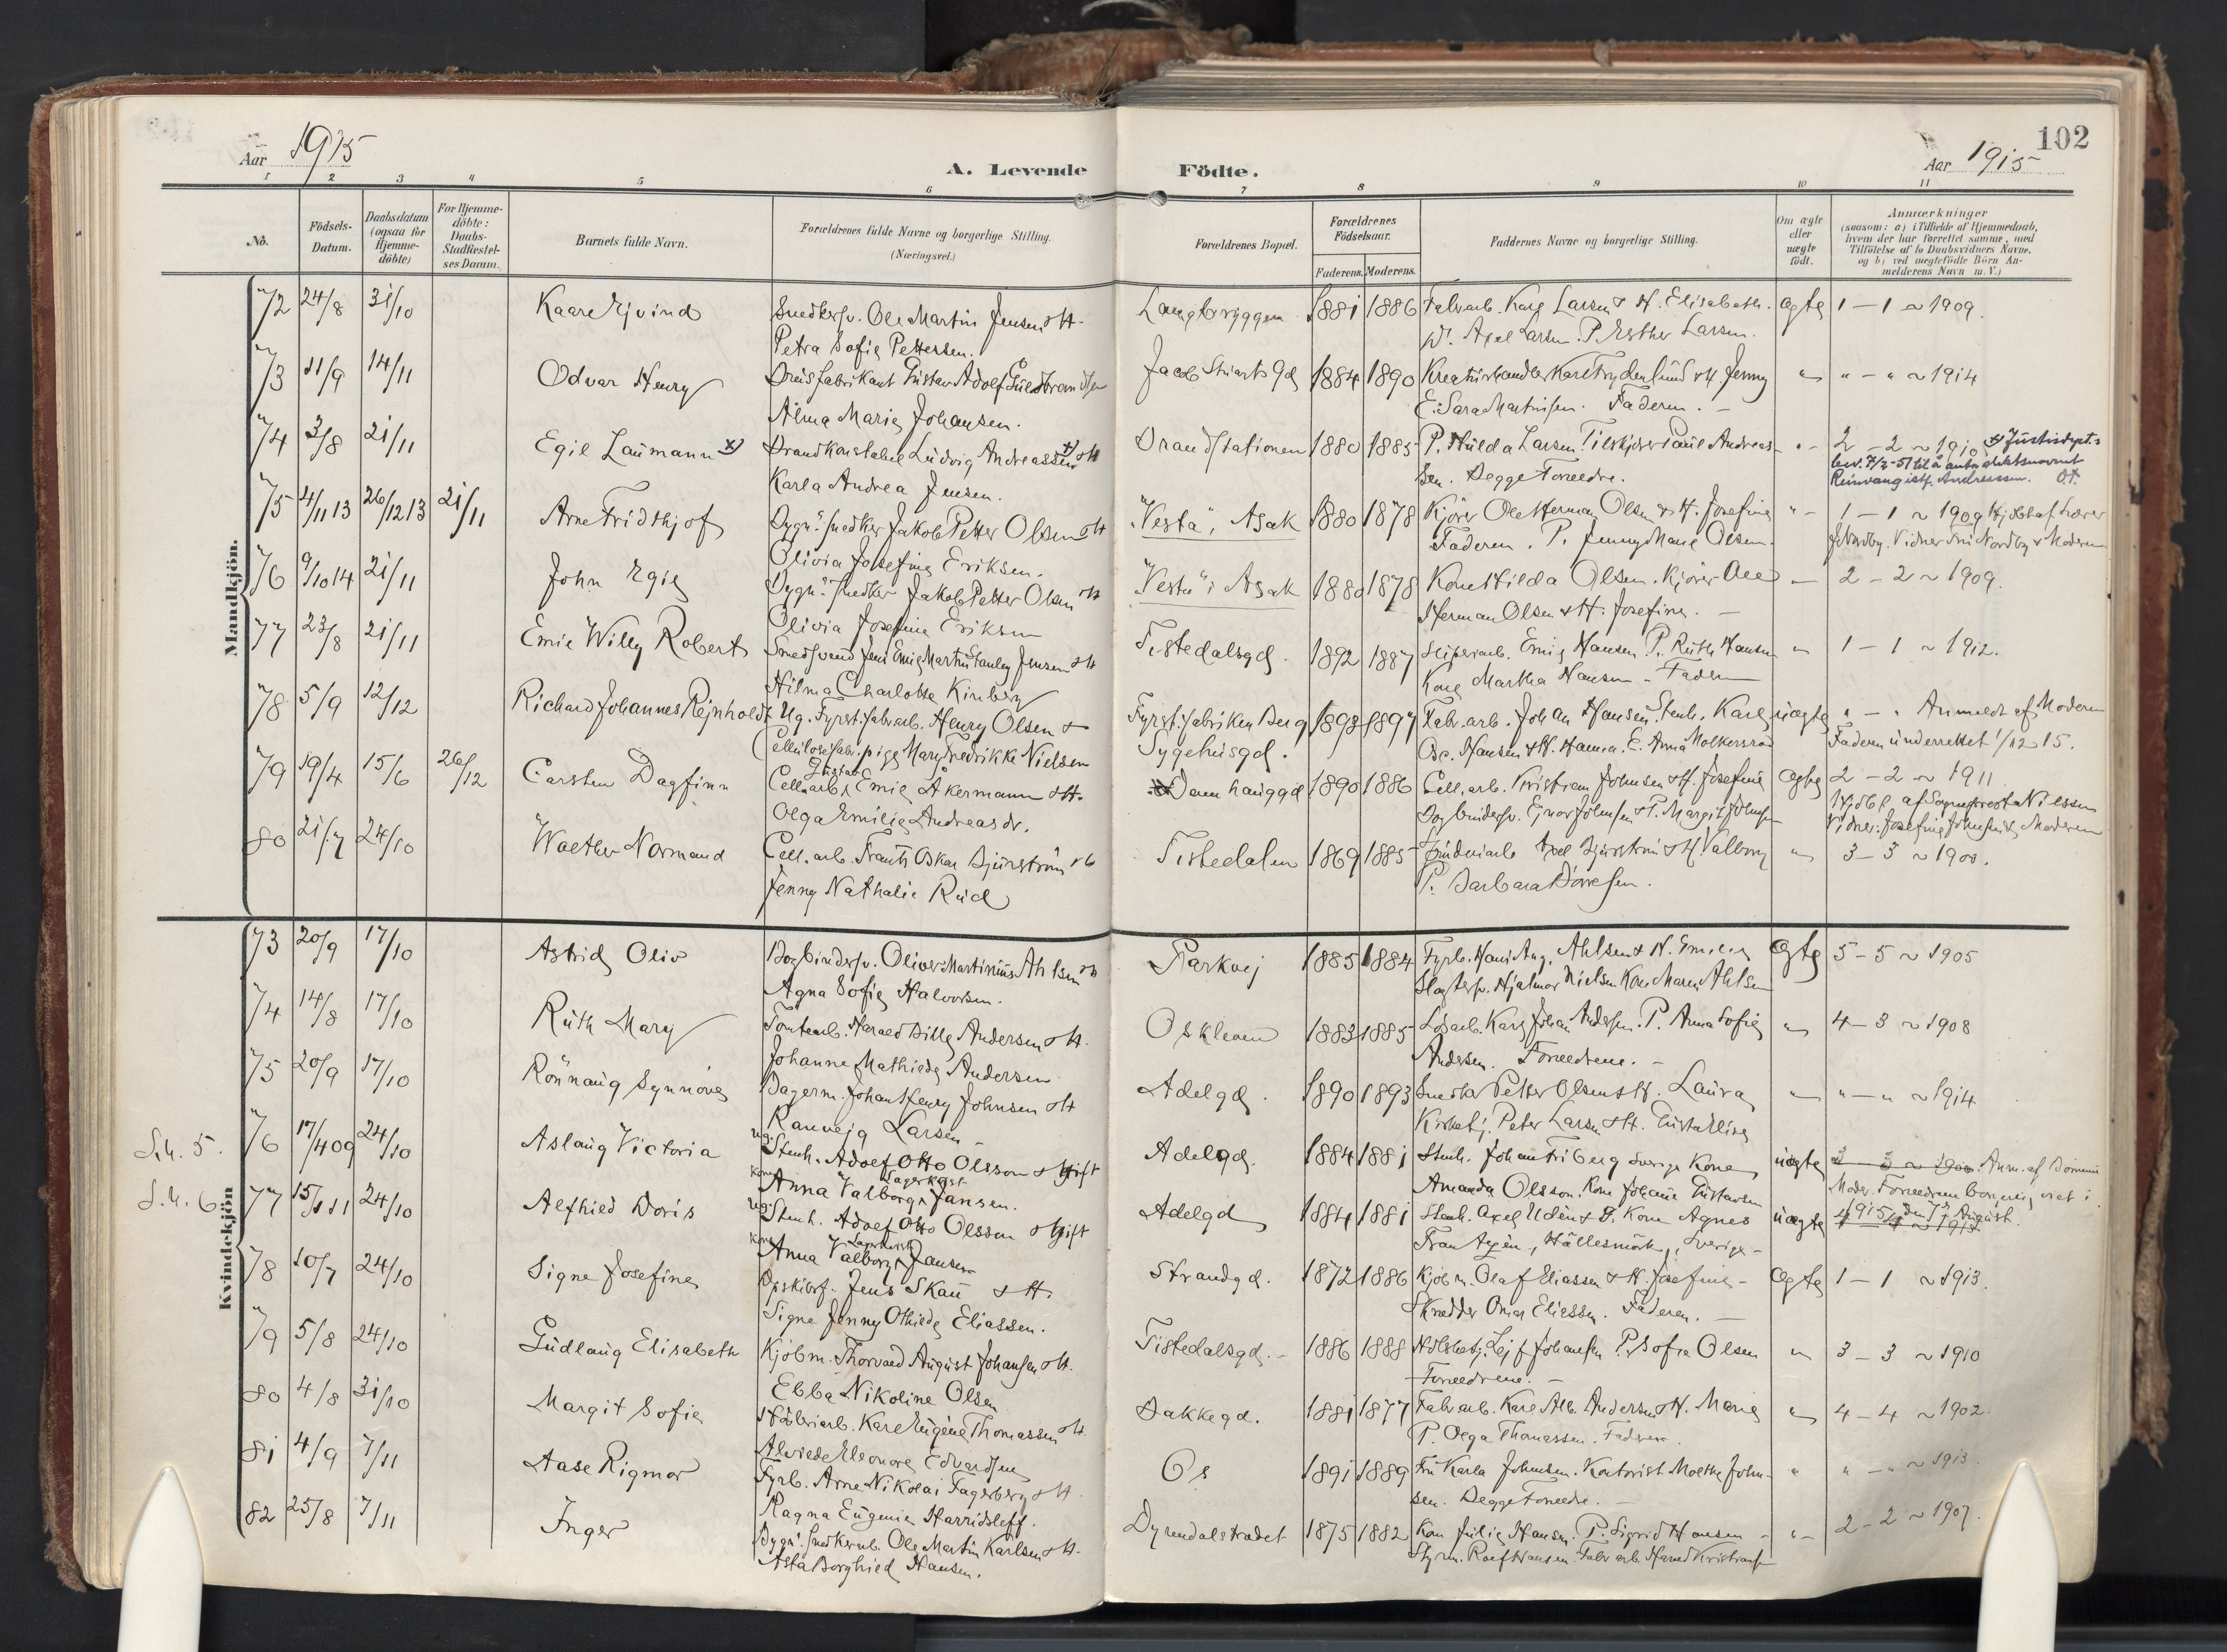 102
Aar 1915
A. Levende Födte.
Aar 1915
1 2 3 4 5 6 7 8 9 10 11
No. Födsels-Datum. Daabsdatum (ogsaa for Hjemme-döbte) For Hjemme-döbte: Daabs-Stadfæstel-ses Datum. Barnets fulde Navn. Forældrenes fulde Navne og borgerlige Stilling. (Næringsvei.) Forældrenes Bopæl. Forældrenes Födselsaar. Faderens. Moderens. Faddernes Navne og borgerlige Stilling. Om ægte eller uægte födt. Anmærkninger (saasom: a) i Tilfælde af Hjemmedaab, hvem der har forrettet samme, med Tilföielse af to Daabsvidners Navne, og b) ved uægtefödte Börn An-melderens Navn m.V.)
Mandkjön.
72 24/8 31/10 Kaare Ejvind Snedkersv. Ole Martin Jensen & H. Langbryggen 1881 1886 Fabr.arb. Karl Larsen & H. Elisabeth. ægte 1 – 1 ~ 1909
Petra Sofie Pettersen. Axel Larsen. P. Esther Larsen.
73 11/9 14/11 Odvar Henry Brusfabrikant Gustav Adolf Guldbrandsen Jacob Stuarts Gd 1884 1890 Kreaturhandler Karl Frydenlund & H. Jenny " " – " ~ 1914
Alma Marie Johansen. E. Sara Martinsen. Faderen. –
74 3/8 21/11 Egil Laumann x) Brandkonstabel Ludvig Andreassen x) & H Brandstationen 1880 1885 P. Hulda Larsen. Tilskjærer Paul Andreas- " 2 – 2 ~ 1910 x) Justisdept.s
Karla Andrea Jensen. sen. Begge Forældre. bev. 7/3-51 til å anta slektsnavnet
Reinvang istf. Andreassen. O.T.
75 4/11 13 26/12 13 21/11 Arne Fridthjof Bygn. snedker Jakob Petter Olsen & H "Vesta", Asak 1880 1878 Kjörer Ole Herman Olsen & H. Josefine " 1 – 1 ~ 1909 Hj.döbt af Lærer
Olivia Josefine Eriksen. Faderen. P. Jenny Marie Olsen. J. Nordby. Vidner Fru Nordby & Moderen
76 9/10 14 21/11 John Egil Bygn. snedker Jakob Petter Olsen & H "Vesta" i Asak 1880 1878 Kone Hilda Olsen. Kjörer Ole " 2 – 2 ~ 1909.
Olivia Josefine Eriksen Herman Olsen & H. Josefine. –
77 23/8 21/11 Emil Willy Robert Smedsvend Jens Emil Martin Stanley Jensen & H Tistedalsgd. 1892 1887 Sliperiarb. Emil Hansen P. Ruth Hansen " 1 – 1 ~ 1912.
Hilma Charlotte Kinberg Kone Martha Hansen – Faderen
78 5/9 12/12 Richard Johannes Rejnholdt Ug. Fyrst.fabr.arb. Henry Olsen & Fyrst.fabriken Berg 1893 1897 Fabr.arb. Johan Hansen, Stenh. Karl uægte " – " Anmeldt af Moderen
Cellulosefabr.pige Mary Fredrikke Nielsen Sygehusgd. Osc. Hansen & H. Hanna. E. Anna Molkersröd Faderen underrettet 1/12 15.
79 19/4 15/6 26/12 Carsten Dagfinn Cell.arb. Gustav Emil Åkermann & H. Damhauggd 1890 1886 Cell.arb. Kristian Johnsen & H. Josefine ægte 2 – 2 ~ 1911
Olga Emilie Andreasdr. Bogbindersv. Ejnar Johnsen & P. Margit Johnsen Hj.döbt af Sogneprest Nilssen
Vidner: Josefine Johnsen & Moderen
80 21/7 24/10 Walther Normand Cell.arb. Frants Oskar Bjurström & H Tistedalen 1869 1885 Axel Bjurström & H. Valborg " 3 – 3 ~ 1900.
Jenny Nathalie Rud P. Barbara
Kvindekjön
73 20/9 17/10 Astrid Oliv Bogbindersv. Oliver Martinius Ahlsen & H Parkvej 1885 1884 Fyrb. Hans Aug. Ahlsen & H. Emilie ægte 5 – 5 ~ 1905
Agna Sofie Halvorsen. Slagtersv. Hjalmar Nielsen Kone Maren Ahlsen
74 14/8 17/10 Ruth Mary Tomtearb. Harald Billy Andersen & H. Oskleven 1883 1885 Lösarb. Karl Johan Andersen. P. Anna Sofie " 4 – 3 ~ 1908
Johanne Mathilde Andersen Andersen. Forældrene. –
75 20/9 17/10 Rönnaug Synnöve Bagerm. Johan Henry Johnsen & H Adelgd. 1890 1893 Snedker Petter Olsen & H. Laura " " – " ~ 1914
Ranveig Larsen – Kirketj. Peter Larsen & H.
S.h. 5. 76 17/4 09 24/10 Aslaug Victoria ug. Stenh. Adolf Otto Olsson & gift Adelgd. 1884 1881 Stenh. Johan Friberg Sverige Kone uægte 3 – 3 ~ 1900. Anm. af
kone Anna Valborg Lagerkvist Jansen. Amanda Olsson. Kone Johanne Gustavsen Moder. Forældrene i
S.h. 6 77 15/1 11 24/10 Alfhild Doris ug. Stenh. Adolf Otto Olsson & gift Adelgd 1884 1881 Stenh. Axel Udén & H. Kone Agnes uægte 1915 den 7. August.
kone Anna Valborg Lagerkvist Jansen Hällesmörk, Sverige – 4 – 4 ~ 1913
78 10/7 24/10 Signe Josefine Opskibsf. Jens Skau & H. Strandgd. 1872 1886 Kjöbm. Olaf Eliassen & H. Josefine – ægte 1 – 1 ~ 1913.
Signe Jenny Othilde Eliassen. Skrædder Omar Eliassen. Faderen. –
79 5/8 24/10 Gudlaug Elisabeth Kjöbm. Thorvald August Johansen & H. Tistedalsgd. – 1886 1888 Leif Johansen P. Sofie Olsen " 3 – 3 ~ 1910
Ebba Nikoline Olsen Forældrene. –
80 4/8 31/10 Margit Sofie Hövleriarb. Karl Eugène Thomassen & H. Bakkegd. 1881 1877 Fabr.arb. Karl Alb. Andersen & H. Marie " 4 – 4 ~ 1902.
Alvilde Eleonore Edvardsen P. Olga Thomassen. Faderen.
81 4/9 7/11 Aase Rigmor Fyrb. Arne Nikolai Fagerberg & H. Os 1891 1889 Fru Karla Johnsen. Kontorist Molthe John- " " – " ~ 1913.
Ragna Eugenie Harridsleff. sen. Begge Forældre. –
82 25/8 7/11 Inger Bygn. snedkerarb. Ole Martin Karlsen & H. Dyrendalstrædet 1875 1882 Kone Julie Hansen. P. Sigrid Hansen – " 2 – 2 ~ 1907.
Asta Borghild Hansen. Styrm. Rolf Hansen. Fabr.arb. Harald Kristiansen